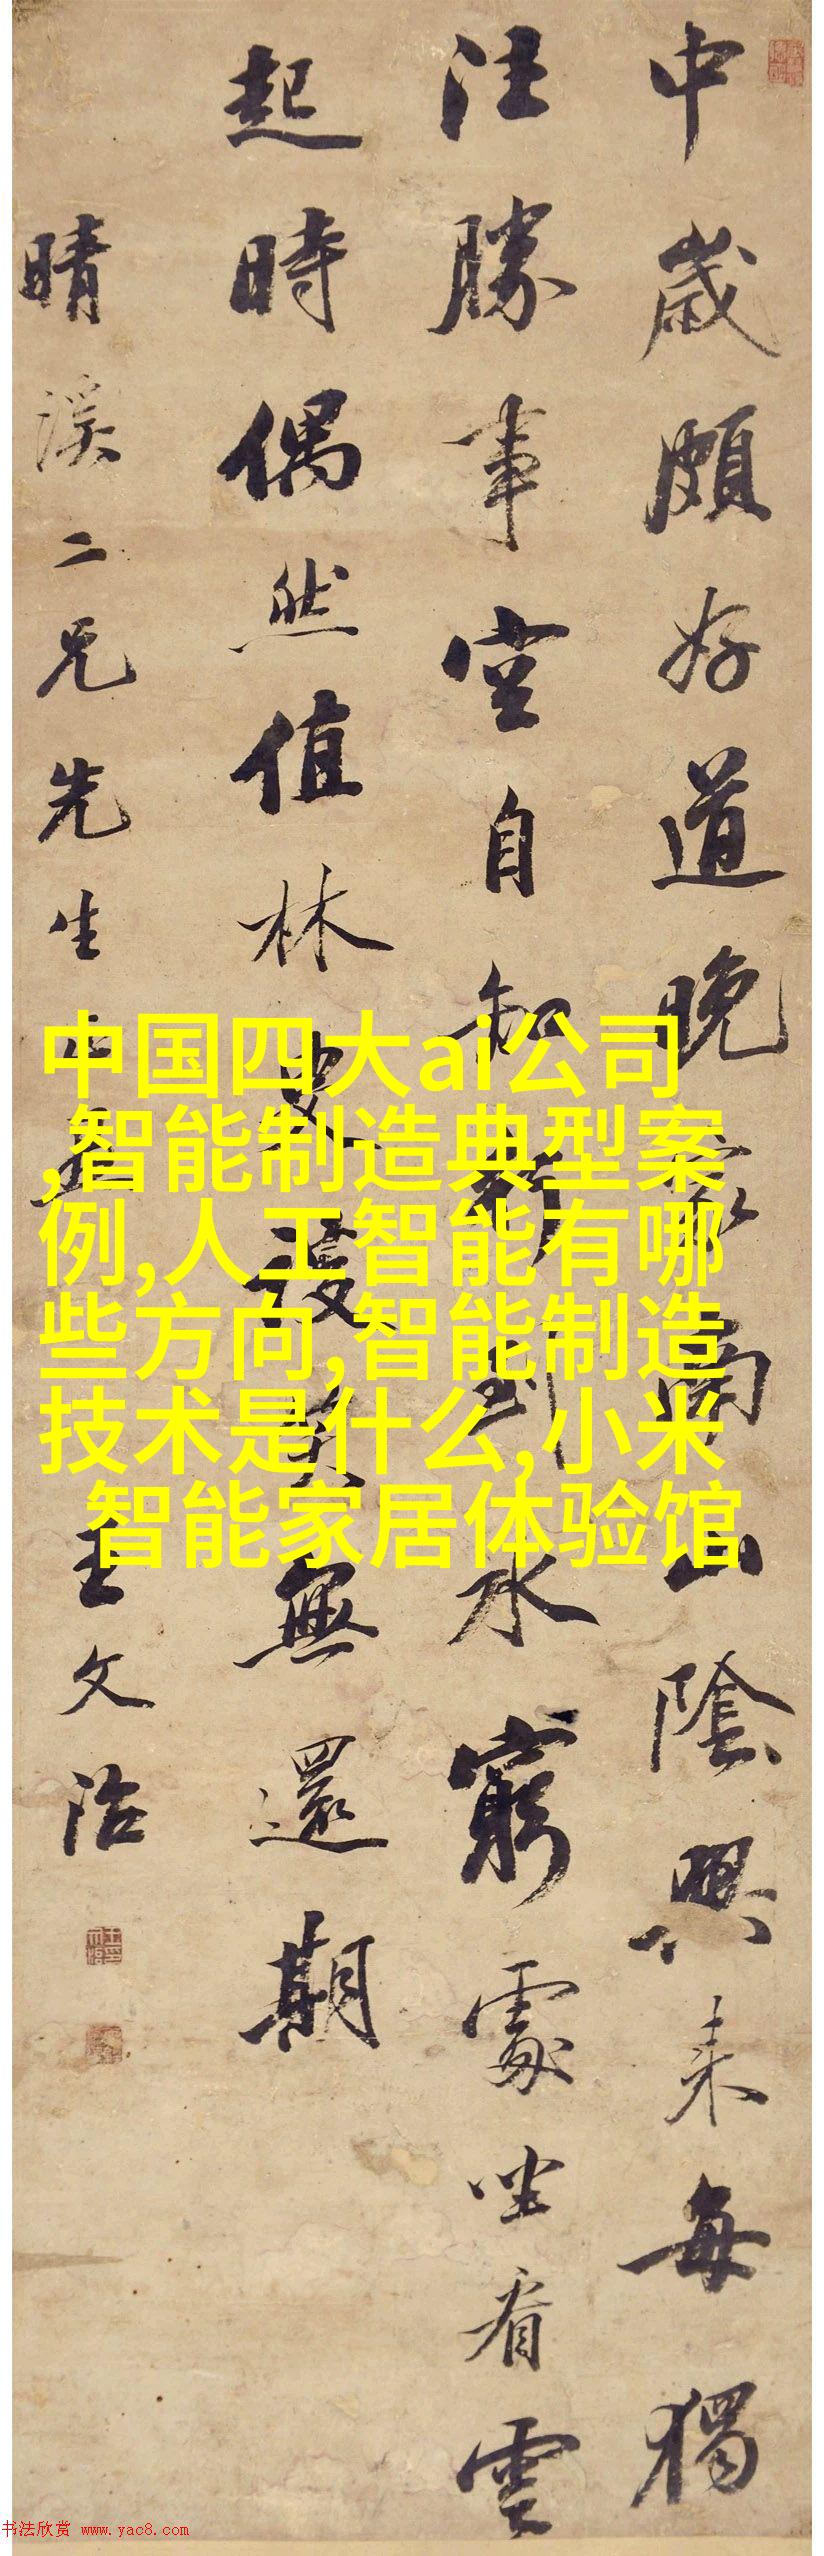 中歲頗好道晚家南山陰興來每獨
往勝事空自知行到水窮處坐看雲
起時偶然值林叟談笑無還期
晴溪二兄先生
王文治
中国四大ai公司
,智能制造典型案
例,人工智能有哪
些方向,智能制造
技术是什么,小米
智能家居体验馆
书法欣赏 www.yac8.com